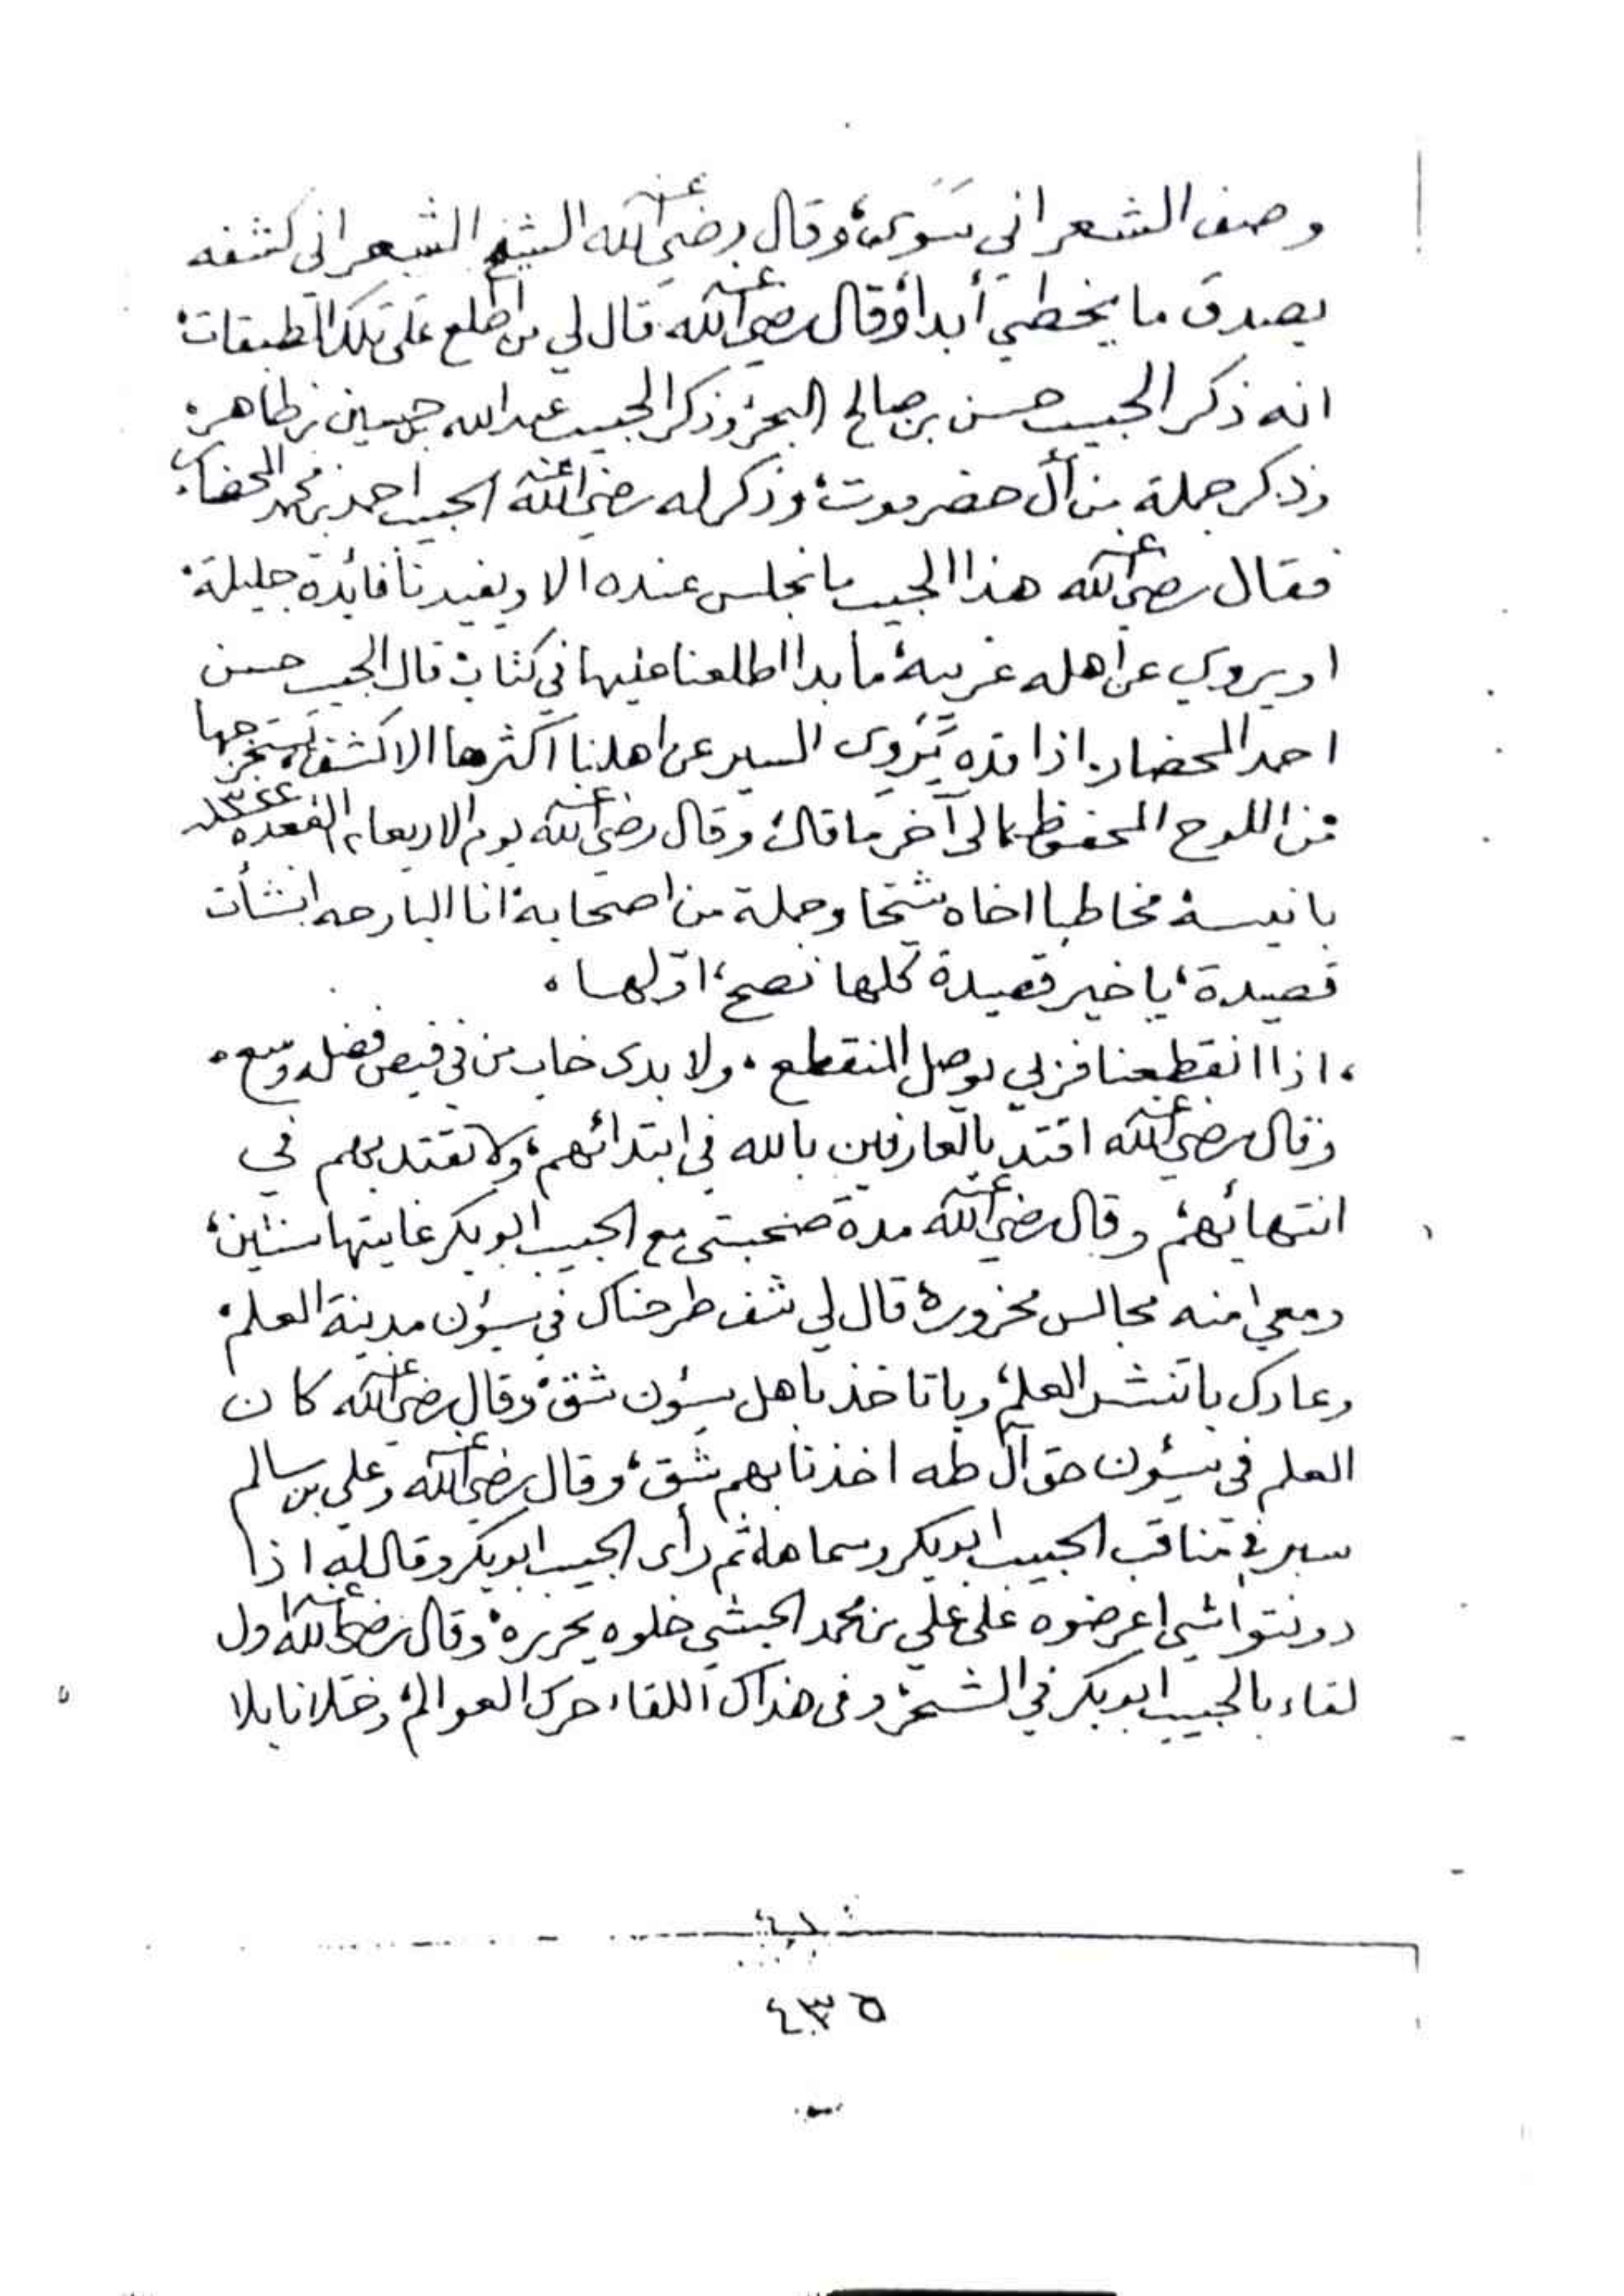 وصف الشعراني سَوى، وقال رضي الله عنه الشيخ الشعراني كشفه
يصدق ما يخطي أبدا، وقال رضي الله عنه قال لي من اطلع على تلك الطبقات،
انه ذكر الحبيب حسن بن صالح البحر، وذكر الحبيب عبدالله بن حسين بن طاهر،
وذكر جملة من آل حضرموت، وذكر له رضي الله عنه الحبيب احمد بن محمد المحضار،
فقال رضي الله عنه هذا الحبيب ما نجلس عنده الا ويفيدنا فائدة جليلة،
او يروي عن اهله غريبة، ما بدا اطلعنا عليها في كتاب، قال الحبيب حسن
احمد المحضار، اذا قده يَرْوى السير عن اهلنا اكثرها الا كشف، يستخرجها
من اللوح المحفوظ، الى آخر ما قال، وقال رضي الله عنه يوم الاربعاء القعده ١٣٢٤
بانيسة، مخاطبا اخاه شيخا وجملة من اصحابه، انا البارحه انشأت
قصيدة، يا خير قصيدة كلها نصح، اوّلها،
، اذا انقطعنا فربي يوصل المنقطع ، ولا بدى خاب من في فيض فضله وسع ،
وقال رضي الله عنه اقتد بالعارفين بالله في ابتدائهم، ولا تقتد بهم في
انتهائهم، وقال رضي الله عنه مدة صحبتي مع الحبيب ابوبكر غايتها سنتين،
ومعي منه مجالس مخزورة، قال لي شف طرحناك في سيؤن مدينة العلم،
وعادك باتنشر العلم، وباتاخذ باهل سيؤن شق، وقال رضي الله عنه كان
العلم في سيؤن حق آل طه اخذنا بهم شق، وقال رضي الله عنه وعلي بن سالم
سير في مناقب الحبيب ابوبكر وسماها، ثم رأى الحبيب ابوبكر وقال له اذا
دونتوا شي اعرضوه على علي بن محمد الحبشي خلوه يحرره، وقال رضي الله عنه اول
لقاء بالحبيب ابوبكر في الشحر، وفي هذاك اللقاء حرك العوالم، وخلانا بلا
٤٣٥